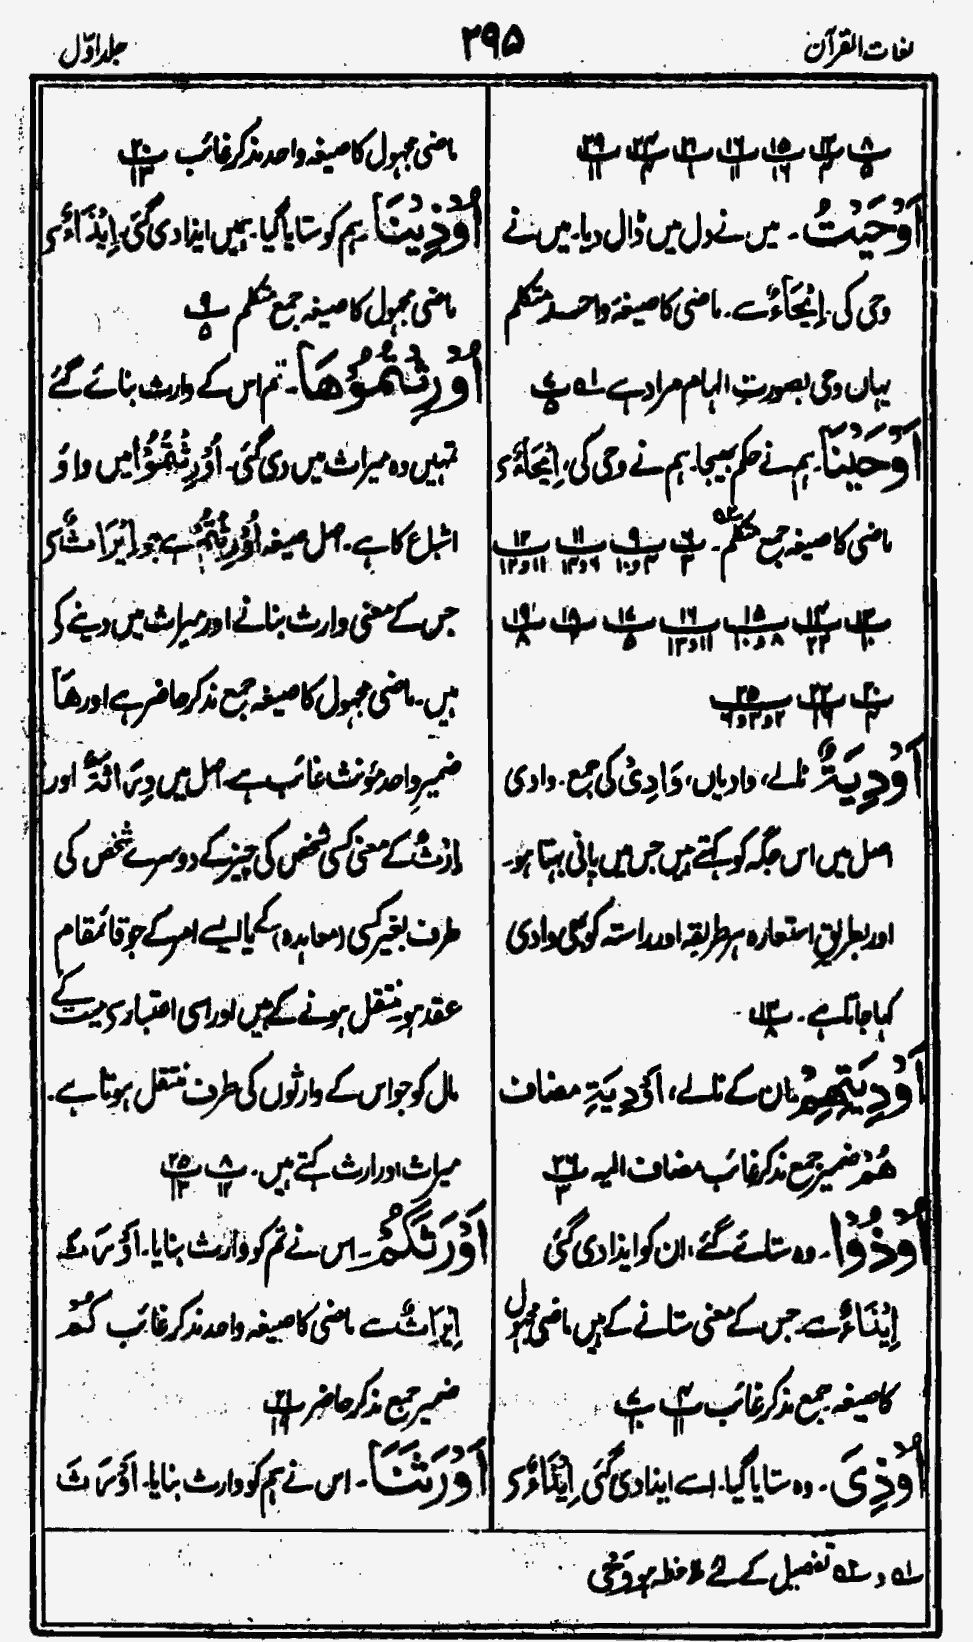 لغات القرآن
۲۹۵
جلد اوّل
۸/۵
أُوْحَيْتُ ۔ میں نے دل میں ڈال دیا۔ میں نے
وحی کی۔ إِيْحَاءٌ سے۔ ماضی کا صیغہ واحد متکلم
یہاں وحی بصورتِ الہام مراد ہے
أَوْحَيْنَا۔ ہم نے حکم بھیجا۔ ہم نے وحی کی، إِيْحَاءٌ سے
ماضی کا صیغہ جمع متکلم۔
أَوْدِيَةٌ نالے، وادیاں، وَادِیْ کی جمع۔ وادی
اصل میں اس جگہ کو کہتے ہیں جس میں پانی بہتا ہو۔
اور بطریقِ استعارہ ہر طریقہ اور راستہ کو بھی وادی
کہا جاتا ہے۔ ۱۳/۸
أَوْدِيَتِهِمْ ان کے نالے، أَوْدِيَةِ مضاف
هُمْ ضمیر جمع مذکر غائب مضاف الیہ ۲۶/۳
أُوْذُوْا۔ وہ ستائے گئے، ان کو ایذا دی گئی
إِيْذَاءٌ سے جس کے معنی ستانے کے ہیں ماضی مجہول
کا صیغہ جمع مذکر غائب
أُوْذِيَ۔ وہ ستایا گیا۔ اسے ایذا دی گئی إِيْذَاءٌ سے
ماضی مجہول کا صیغہ واحد مذکر غائب ۲۰/۱۳
أُوْذِيْنَا۔ ہم کو ستایا گیا۔ ہمیں ایذا دی گئی۔ إِيْذَاءٌ سے
ماضی مجہول کا صیغہ جمع متکلم ۹/۵
أُوْرِثْتُمُوْهَا۔ تم اس کے وارث بنائے گئے
تمہیں وہ میراث میں دی گئی۔ أُوْرِثْتُمُوْا میں واؤ
اشباع کا ہے۔ اصل صیغہ أُوْرِثْتُمْ ہے جو إِيْرَاثٌ سے
جس کے معنی وارث بنانے اور میراث میں دینے کے
ہیں۔ ماضی مجہول کا صیغہ جمع مذکر حاضر ہے اور هَا
ضمیر واحد مؤنث غائب ہے اصل میں وِرَاثَةٌ اور
إِرْثٌ کے معنی کسی شخص کی چیز کے دوسرے شخص کی
طرف بغیر کسی (معاہدہ) کے یا ایسے امر کے جو قائمقام
عقد ہو منتقل ہونے کے ہیں اور اسی اعتبار سے میت کے
مال کو جو اس کے وارثوں کی طرف منتقل ہوتا ہے۔
میراث اور ارث کہتے ہیں۔ ۸/۱۲ ۲۵/۱۳
أَوْرَثَكُمْ۔ اس نے تم کو وارث بنایا۔ أَوْرَثَ
إِيْرَاثٌ سے ماضی کا صیغہ واحد مذکر غائب كُمْ
ضمیر جمع مذکر حاضر ۲۱/۱۹
أَوْرَثَنَا۔ اس نے ہم کو وارث بنایا۔ أَوْرَثَ
تفصیل کے لئے ملاحظہ ہو وَحْیٌ